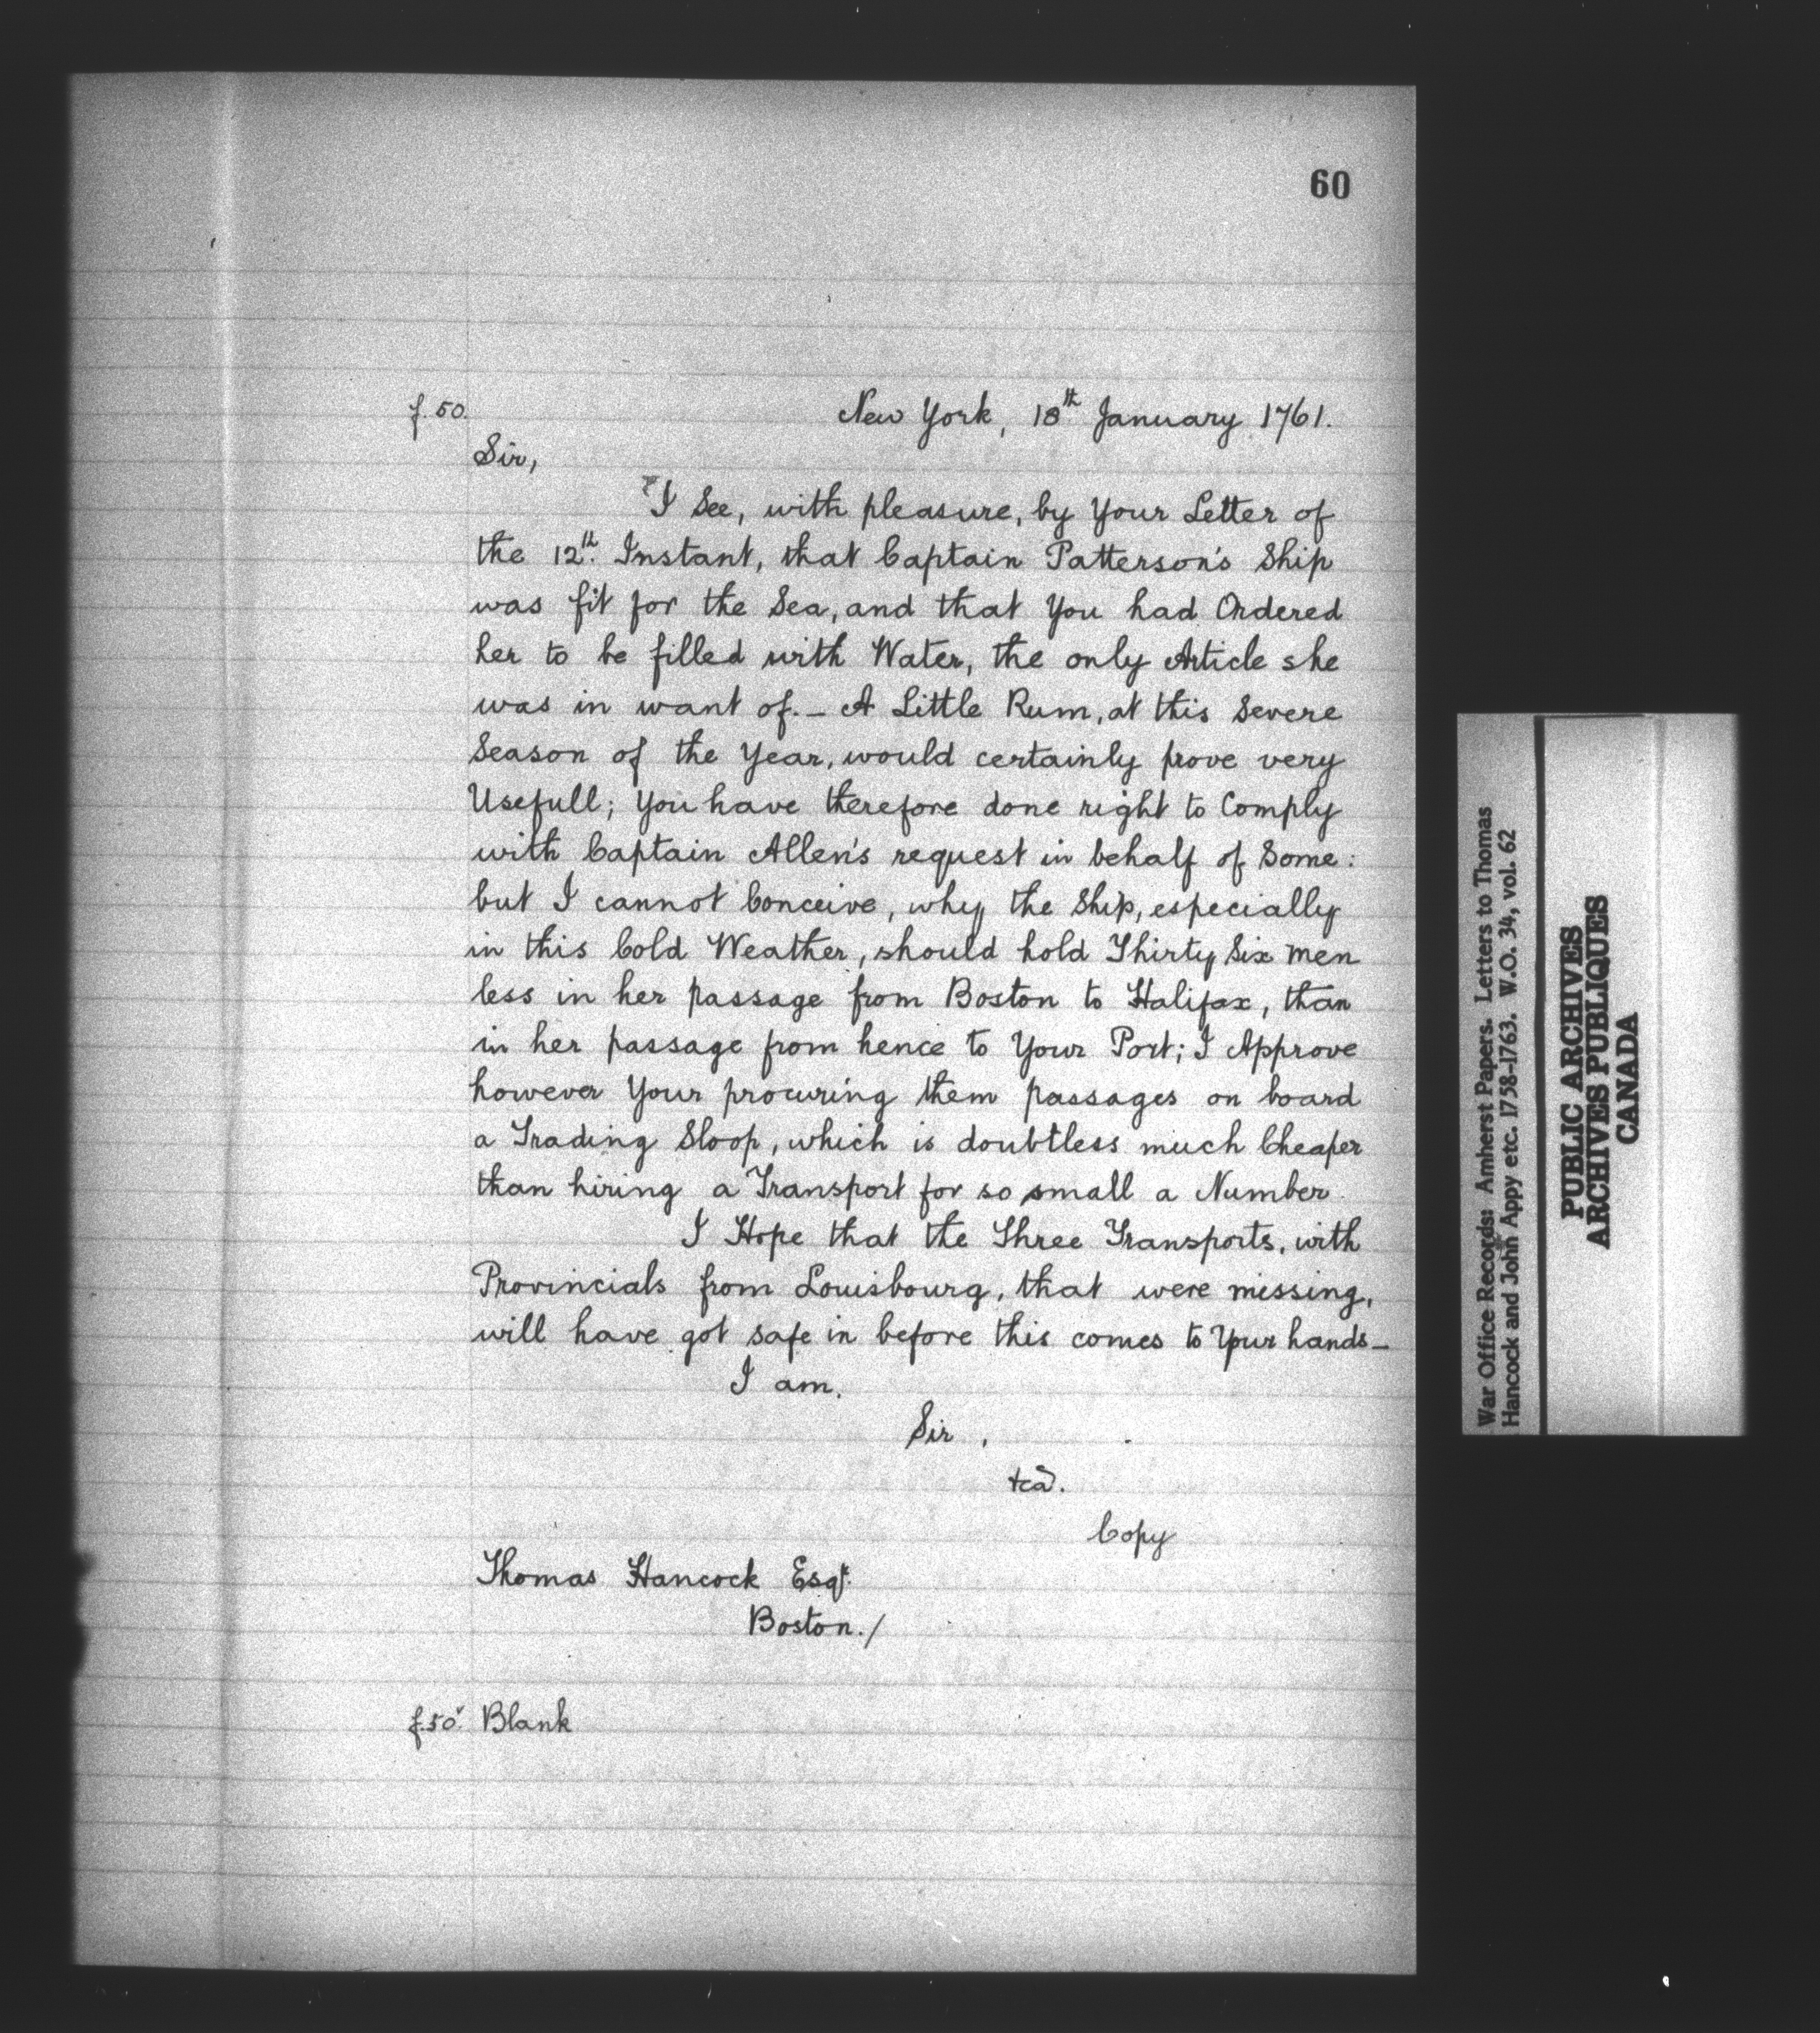 60
f. 50.
New York, 18th January 1761.
Sir,
I See, with pleasure, by Your Letter of
the 12th. Instant, that Captain Patterson's Ship
was fit for the Sea, and that You had Ordered
her to be filled with Water, the only Article she
was in want of. — A Little Rum, at this Severe
Season of the Year, would certainly prove very
Usefull; You have therefore done right to Comply
with Captain Allen's request in behalf of Some:
but I cannot Conceive, why the Ship, especially
in this Cold Weather, should hold Thirty Six men
less in her passage from Boston to Halifax, than
in her passage from hence to Your Port; I Approve
however Your procuring them passages on board
a Trading Sloop, which is doubtless much Cheaper
than hiring a Transport for so small a Number.
I Hope that the Three Transports, with
Provincials from Louisbourg, that were missing,
will have got safe in before this comes to Your hands —
I am,
Sir,
&ca.
Copy
Thomas Hancock Esqr.
Boston./
f. 50v. Blank
War Office Records: Amherst Papers. Letters to Thomas
Hancock and John Appy etc. 1758-1763. W.O. 34, vol. 62
PUBLIC ARCHIVES
ARCHIVES PUBLIQUES
CANADA